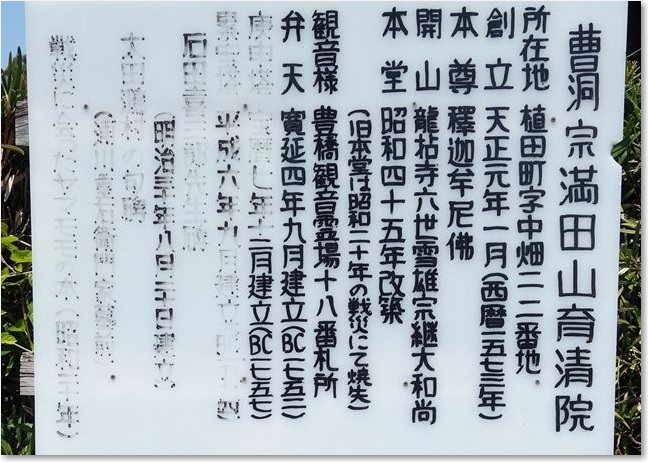 曹洞宗満田山育清院
所在地 植田町字中畑二二番地
創立 天正元年一月(西暦一五七三年)
本尊 釋迦牟尼佛
開山 龍拈寺六世雪雄宗継大和尚
本堂 昭和四十五年改築
(旧本堂は昭和二十年の戦災にて焼失)
観音様 豊橋観音霊場十八番札所
弁天 寛延四年九月建立(BC一七五一)
庚申塔 宝暦七年十二月建立(BC一七五七)
平成六年九月建立
石田 先生
(明治三十年八月二十日建立)
太田 の句碑
戦災に会ったヤマモモの木(昭和二十年)